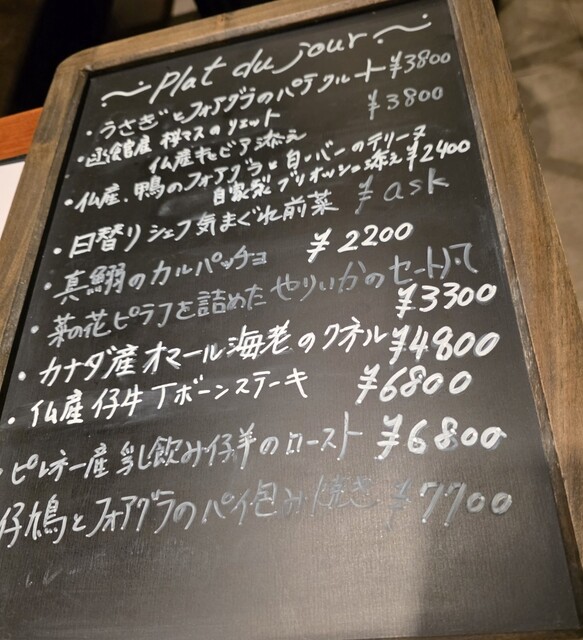 ~ Plat du jour ~
・うさぎとフォアグラのパテクルート ¥3800
・函館産 桜マスのリエット ¥3800
仏産キャビア添え
・仏産、鴨のフォアグラと白レバーのテリーヌ
自家製ブリオッシュ添え ¥2400
・日替りシェフ気まぐれ前菜 ¥ask
・真鰯のカルパッチョ ¥2200
・菜の花ピラフを詰めたやりいかのセート风て
¥3300
・カナダ産オマール海老のクネル ¥4800
・仏産仔牛Tボーンステーキ ¥6800
・ピレネー産乳飲み仔羊のロースト ¥6800
仔鳩とフォアグラのパイ包み焼き ¥7700